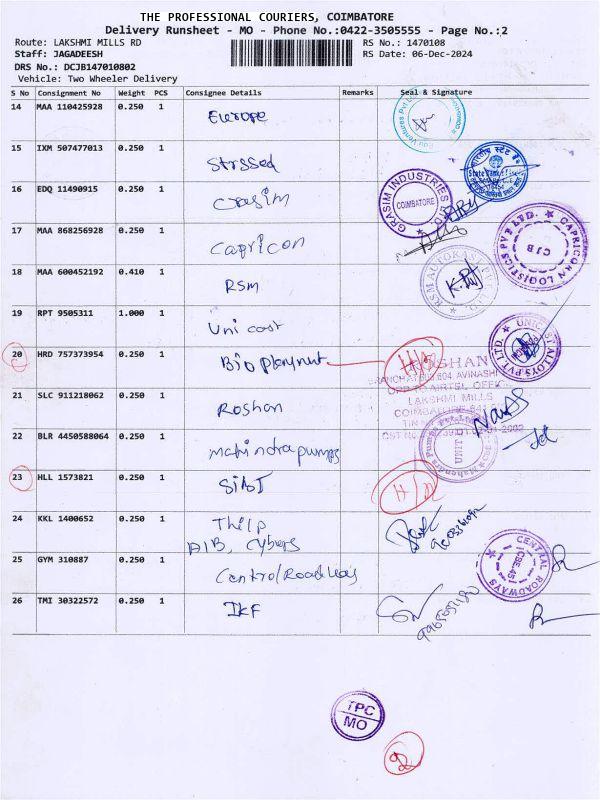 THE PROFESSIONAL COURIERS, COIMBATORE
Delivery Runsheet - MO - Phone No.:0422-3505555 - Page No.:2
Route: LAKSHMI MILLS RD
RS No.: 1470108
Staff: JAGADEESH
RS Date: 06-Dec-2024
DRS No.: DCJB147010802
Vehicle: Two Wheeler Delivery
S No Consignment No Weight PCS Consignee Details Remarks Seal & Signature
14 MAA 110425928 0.250 1 Europe
15 IXM 507477013 0.250 1 Strssed
State Bank
16 EDQ 11490915 0.250 1 Grasim
GRASIM INDUSTRIES LTD
COIMBATORE
17 MAA 868256928 0.250 1 Capricon
CAPRICORN LOGISTICS PVT LTD.
CJB
18 MAA 600452192 0.410 1 RSM
RSM AUTOKAST PVT LTD.
19 RPT 9505311 1.000 1 Uni cost
20 HRD 757373954 0.250 1 Bio plennut
ROSHAN
LAKSHMI MILLS
21 SLC 911218062 0.250 1 Roshan
22 BLR 4450588064 0.250 1 mahindra pumps
Mahendra Pumps Pvt. Ltd.
UNIT
23 HLL 1573821 0.250 1 SIBI
24 KKL 1400652 0.250 1 Thilp
AIB, Cybers
25 GYM 310887 0.250 1 Central Roadways
CENTRAL ROADWAYS
CBE-45
26 TMI 30322572 0.250 1 IKF
TPC
MO